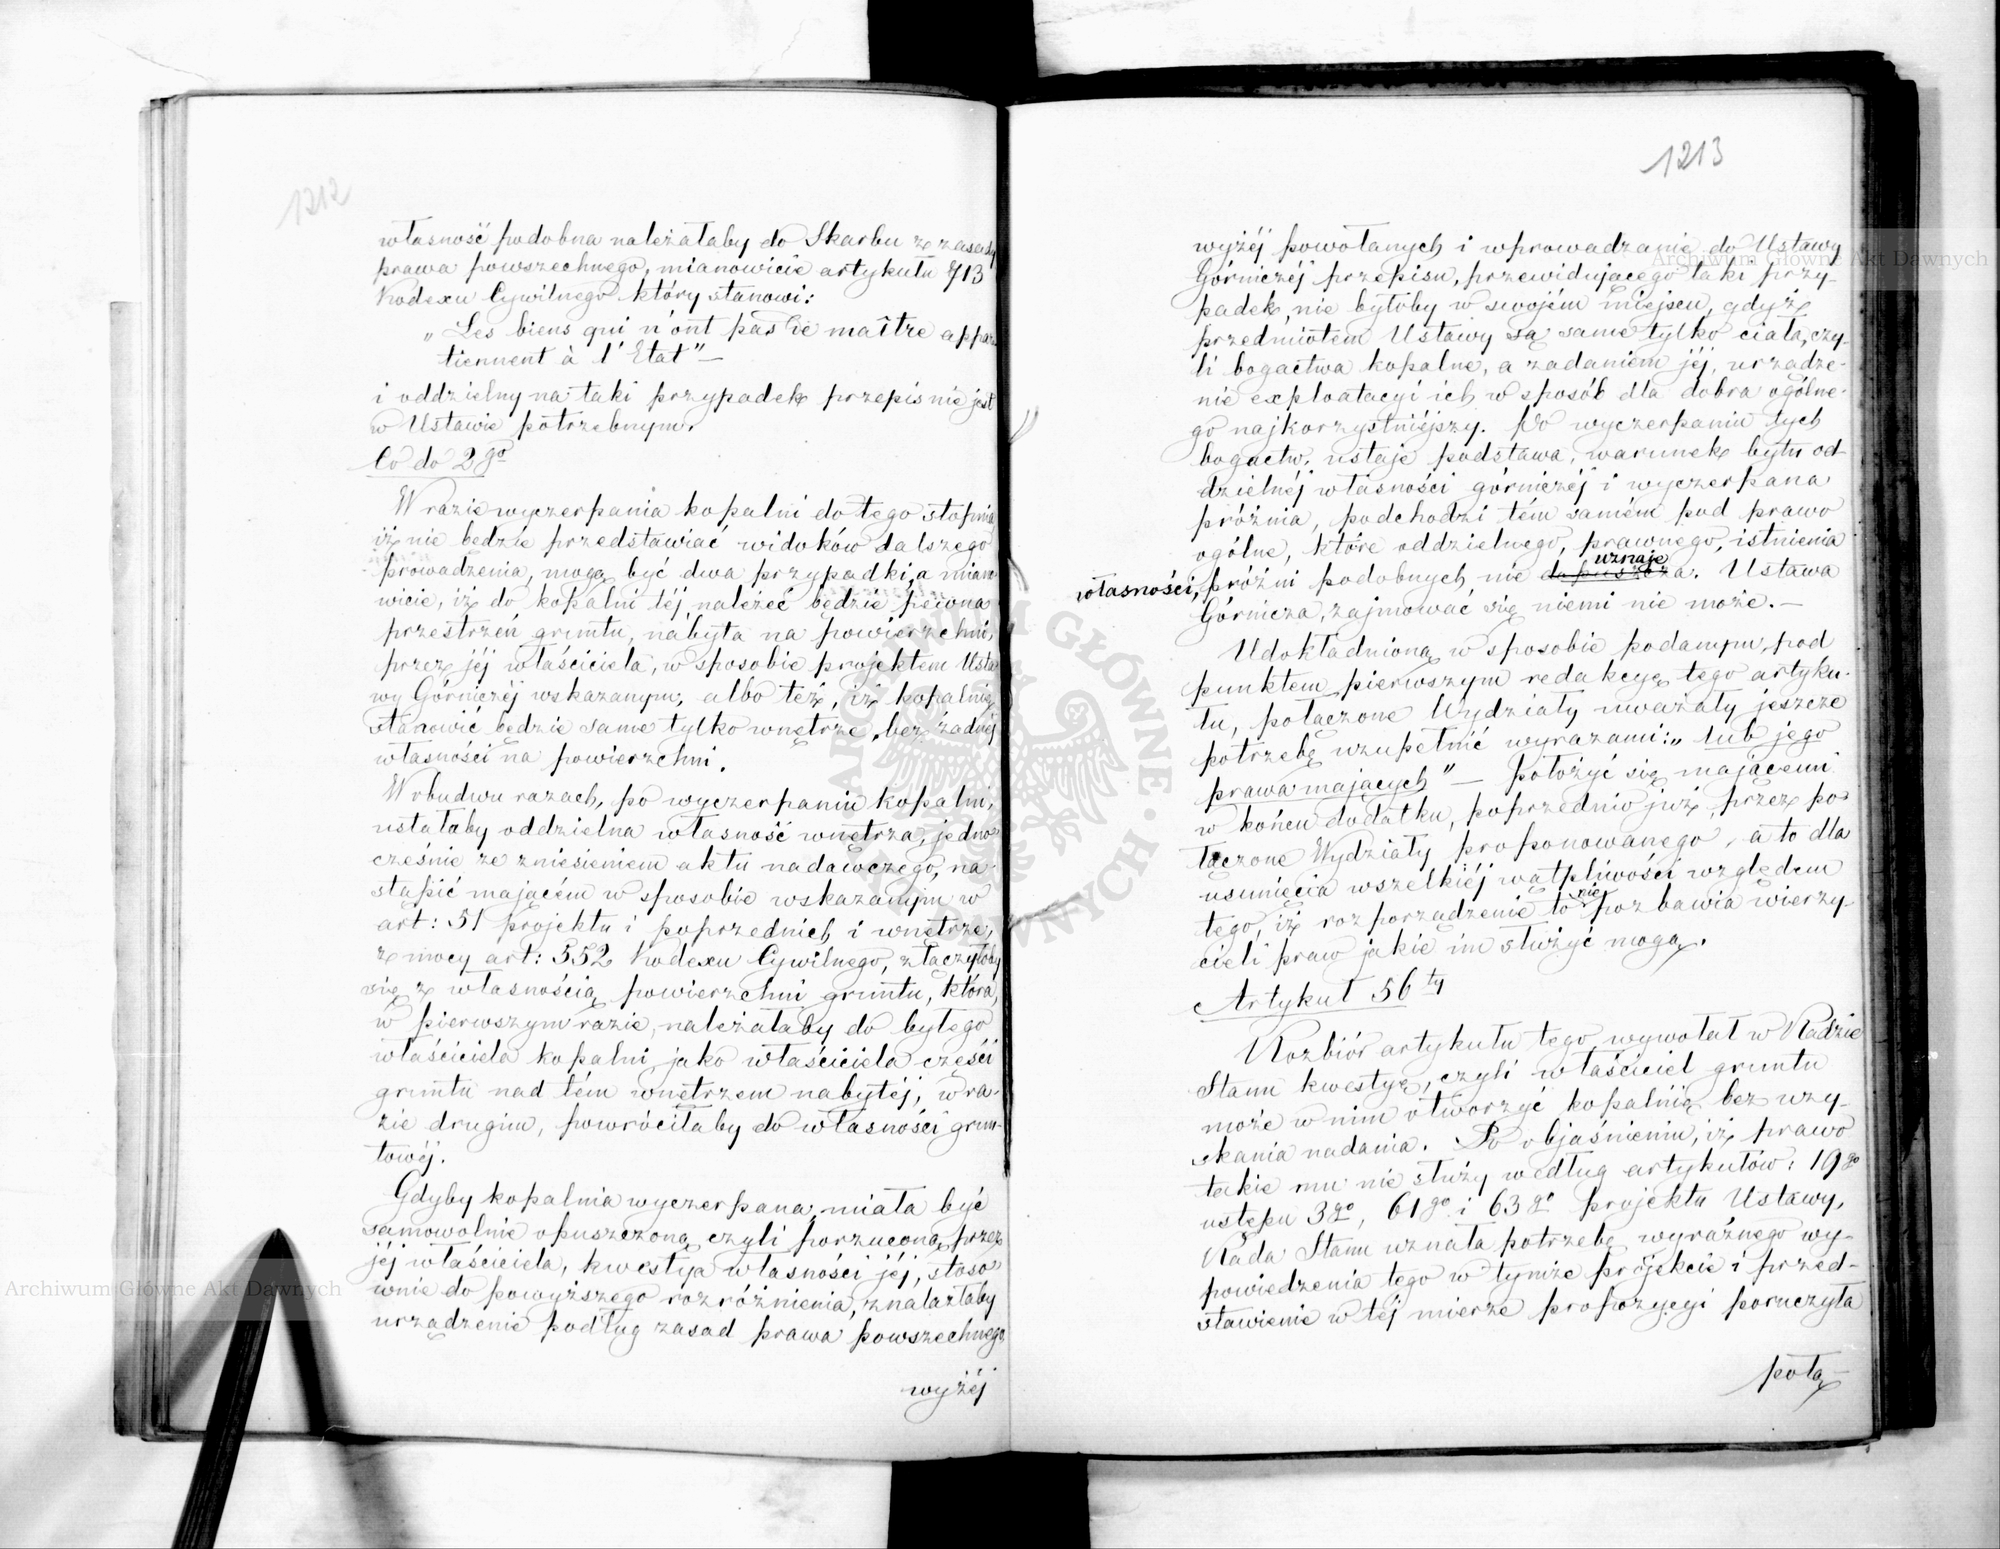 1212
własność podobna należałaby do Skarbu z zasady
prawa powszechnego, mianowicie artykułu 713
Kodexu Cywilnego który stanowi:
„Les biens qui n'ont pas de maître appar
tiennent à l'Etat"—
i oddzielny na taki przypadek przepis nie jest
w Ustawie potrzebnym.
Co do 2go
W razie wyczerpania kopalni do tego stopnia
iż nie będzie przedstawiać widoków dalszego
prowadzenia, mogą być dwa przypadki, a miano
wicie, iż do kopalni téj należeć będzie pewna
przestrzeń gruntu, nabyta na powierzchni,
przez jéj właściciela, w sposobie projektem Usta
wy Górniczéj wskazanym, albo też, iż kopalnię
stanowić będzie same tylko wnętrze, bez żadnéj
własności na powierzchni.
W obudwu razach, po wyczerpaniu kopalni,
ustałaby oddzielna własność wnętrza, jedno
cześnie ze zniesieniem aktu nadawczego, na
stąpić mającém w sposobie wskazanym w
art: 51 Projektu i poprzednich i wnętrze,
z mocy art: 552 Kodexu Cywilnego, złączyłoby
się z własnością powierzchni gruntu, która,
w pierwszym razie, należałaby do byłego
właściciela kopalni, jako właściciela części
gruntu nad tém wnętrzem nabytéj, w ra-
zie drugim, powróciłaby do własności grun-
towéj.
Gdyby kopalnia wyczerpana, miała być
samowolnie opuszczoną czyli porzuconą przez
jéj właściciela, kwestya własności jéj, stoso
wnie do powyższego rozróżnienia, znalazłaby
urządzenie podług zasad prawa powszechnego
wyżéj
1213
wyżéj powołanych i wprowadzanie do Ustawy
Górniczéj przepisu, przewidującego taki przy-
padek, nie byłoby w swojém miejscu, gdyż
przedmiotem Ustawy są same tylko ciała, czy-
li bogactwa kopalne, a zadaniem jéj, urządze-
nie exploatacyi ich w sposób dla dobra ogólne-
go najkorzystniéjszy. Po wyczerpaniu tych
bogactw, ustaje podstawa, warunek bytu od-
dzielnéj własności górniczéj i wyczerpana
próżnia, podchodzi tém samém pod prawo
ogólne, które oddzielnego, prawnego, istnienia
uznaje
własności, próżni podobnych nie dopuszcza. Ustawa
Górnicza, zajmować się niemi nie może.—
Udokładnioną w sposobie podanym, pod
punktem pierwszym redakcyę tego artyku-
łu, połączone Wydziały uważały jeszcze
potrzebę uzupełnić wyrazami: „lub jego
prawa mających"— położyć się mającemi
w końcu dodatku, poprzednio już, przez po-
łączone Wydziały proponowanego, a to dla
usunięcia wszelkiéj wątpliwości względem
tego, iż rozporządzenie to nie pozbawia wierzy-
cieli praw jakie im służyć mogą.
Artykuł 56ty
Rozbiór artykułu tego, wywołał w Radzie
Stanu kwestyę, czyli właściciel gruntu
może w nim otworzyć kopalnię bez uzy-
skania nadania. Po objaśnieniu, iż prawo
takie mu nie służy według artykułów: 19go
ustępu 3go, 61go i 63go projektu Ustawy,
Rada Stanu uznała potrzebę wyraźnego wy-
powiedzenia tego w tymże projekcie i przed-
stawienie w téj mierze propozycyi poruczyła
połą-
Archiwum Główne Akt Dawnych
Archiwum Główne Akt Dawnych
ARCHIWUM GŁÓWNE AKT DAWNYCH